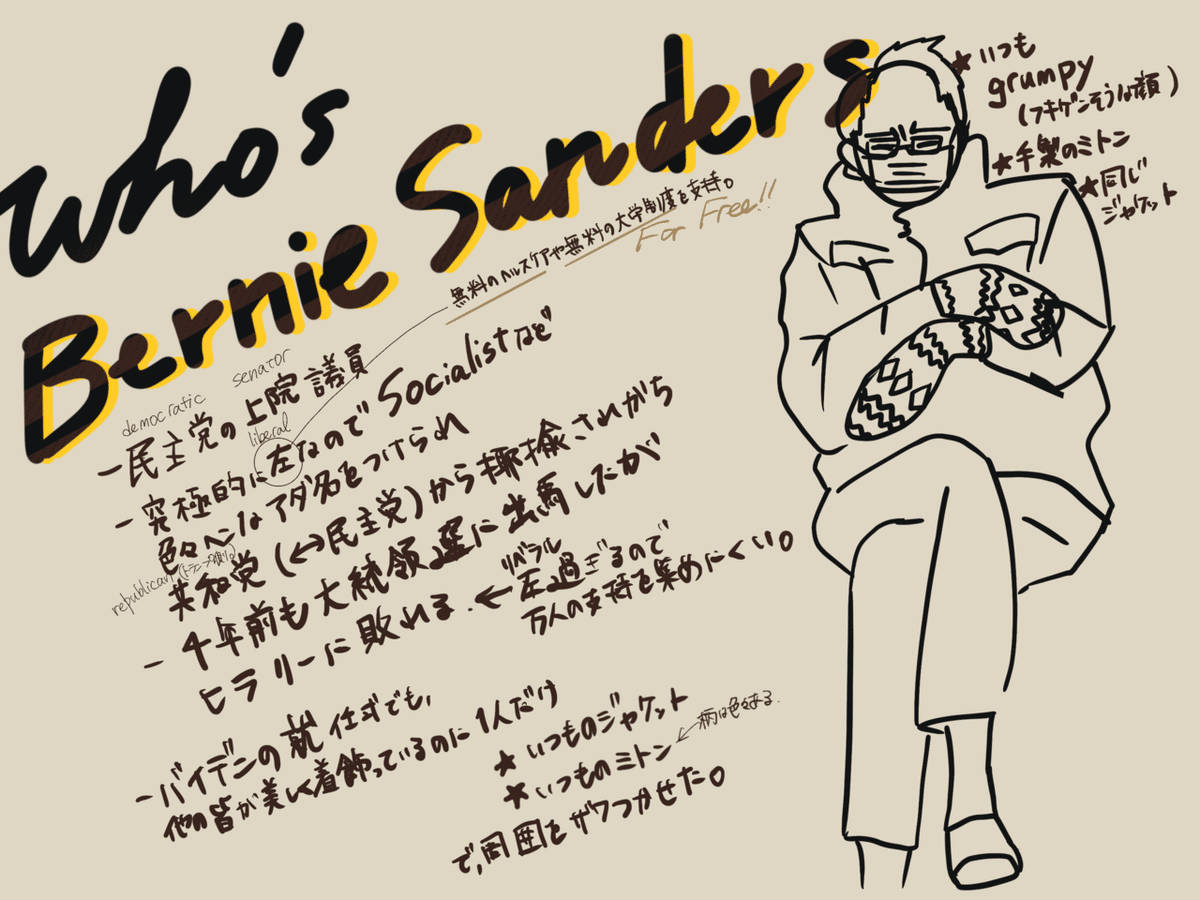 Who's
Bernie Sanders
無料のヘルスケアや無料の大学制度を支持。
For Free!!
democratic
senator
- 民主党の上院議員
liberal
- 究極的に左なのでSocialistなど
色々〜なアダ名をつけられ
republican
共和党(↔民主党)から揶揄されがち
- 4年前も大統領選に出馬したが
ヒラリーに敗れる. ← 左過ぎるので
リベラル
万人の支持を集めにくい。
- バイデンの就任式でも,
他の皆が美しく着飾っているのに1人だけ
★いつものジャケット
★いつものミトン
柄は色々ある.
で,周囲をザワつかせた。
★いつも
grumpy
(フキゲンそうな顔)
★手製のミトン
★同じ
ジャケット